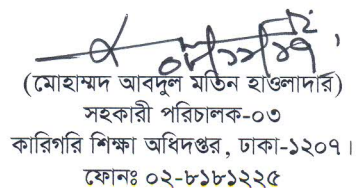 ০৮/১১/১৭
(মোহাম্মদ আবদুল মতিন হাওলাদার)
সহকারী পরিচালক-০৩
কারিগরি শিক্ষা অধিদপ্তর, ঢাকা-১২০৭।
ফোনঃ ০২-৮১৮১২২৫